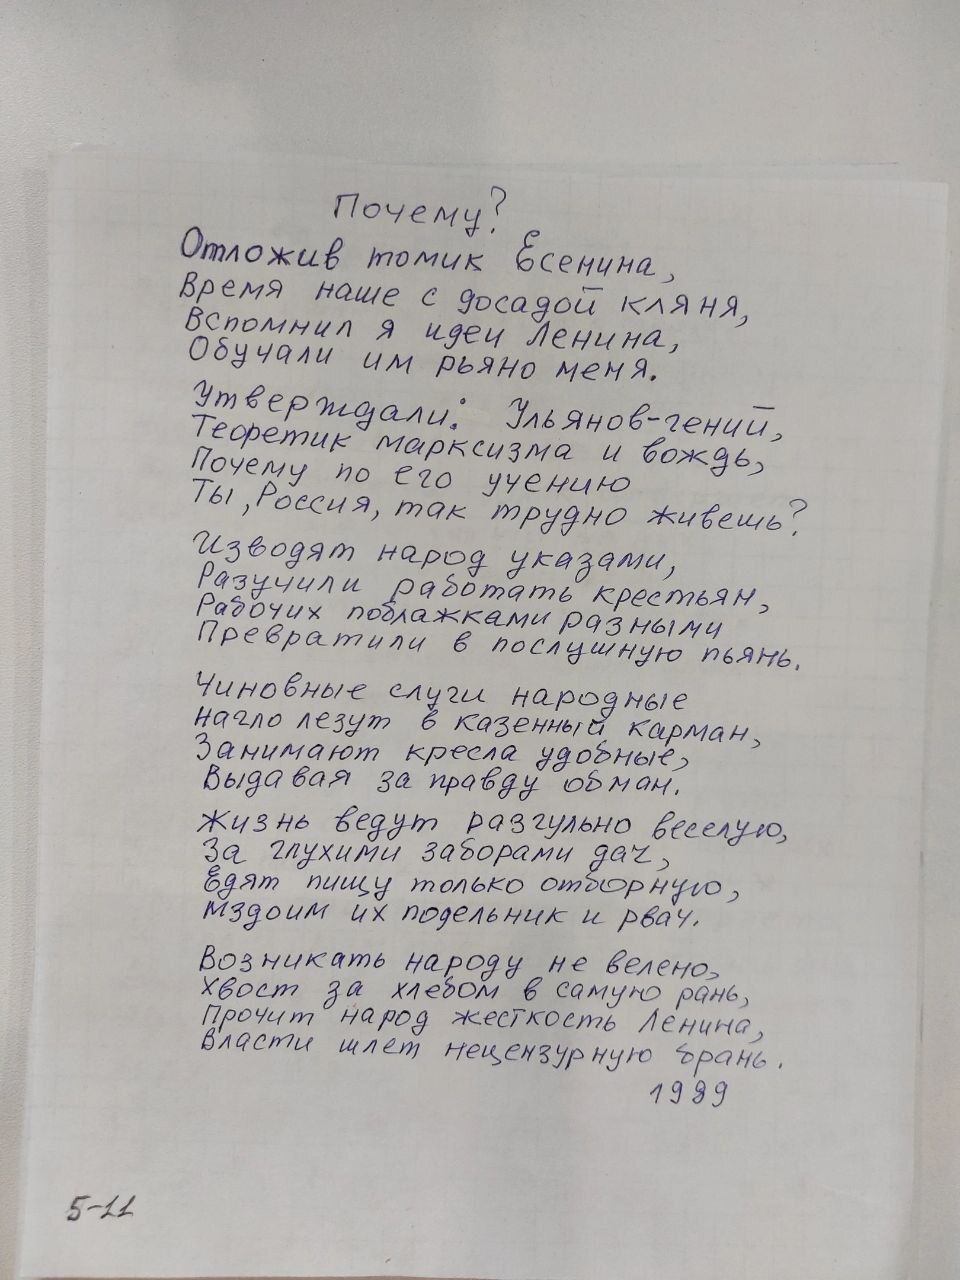 Почему?
Отложив томик Есенина,
Время наше с досадой кляня,
Вспомнил я идеи Ленина,
Обучали им рьяно меня.
Утверждали: Ульянов-гений,
Теоретик марксизма и вождь,
Почему по его учению
Ты, Россия, так трудно живешь?
Изводят народ указами,
Разучили работать крестьян,
Рабочих поблажками разными
Превратили в послушную пьянь.
Чиновные слуги народные
Нагло лезут в казенный карман,
Занимают кресла удобные,
Выдавая за правду обман.
Жизнь ведут разгульно веселую,
За глухими заборами дач,
Едят пищу только отборную,
Мздоим их подельник и рвач.
Возникать народу не велено,
Хвост за хлебом в самую рань,
Прочит народ жесткость Ленина,
Власти шлет нецензурную брань.
1989
5-11